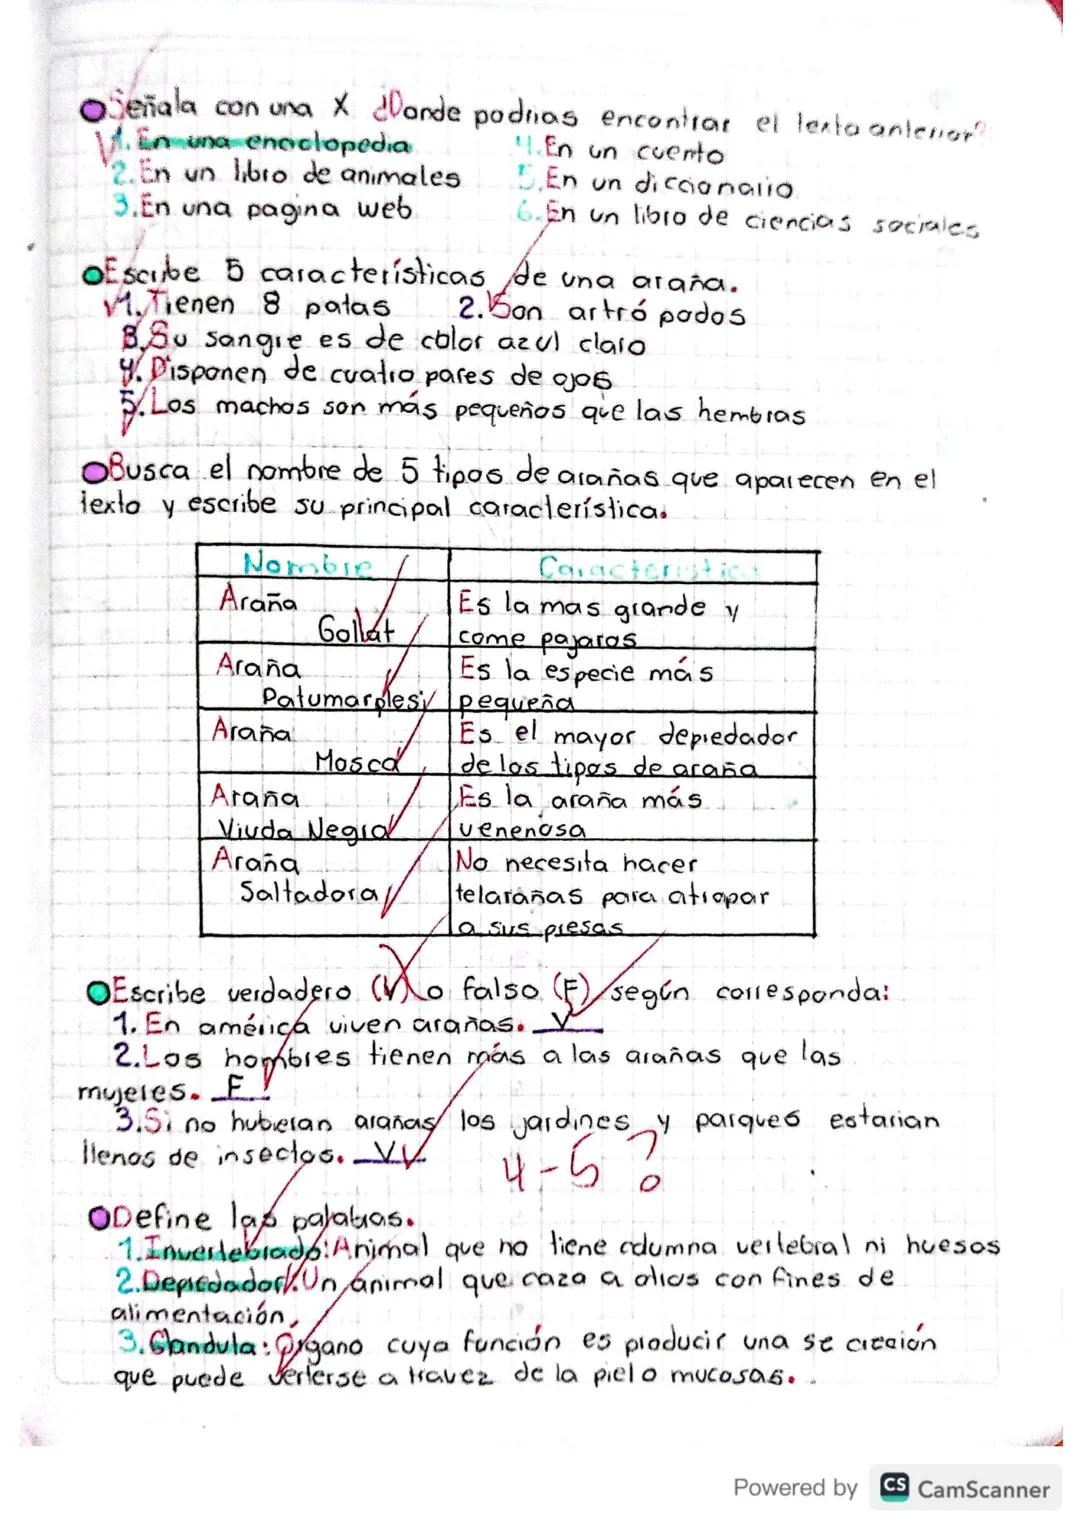 Señala con una X ¿Donde podrias encontrar el texto anterior?
1. En una enciclopedia
4. En un cuento
2. En un libro de animales
5. En un diccionario
3. En una pagina web
6. En un libro de ciencias sociales
Escribe 5 características de una araña.
1. Tienen 8 patas 2. Son artró podos
3. Su sangre es de color azul claro
4. Disponen de cuatro pares de ojos
5. Los machos son más pequeños que las hembras
Busca el nombre de 5 tipos de arañas que aparecen en el
texto y escribe su principal característica.
Nombre Caracteristica
Araña
Goliat
Es la mas grande y
come pajaros
Araña
Patumarplesi
Es la especie más
pequeña
Araña
Mosca
Es el mayor depredador
de los tipos de araña
Araña
Viuda Negra
Es la araña más
venenosa
Araña
Saltadora
No necesita hacer
telarañas para atrapar
a sus presas
Escribe verdadero (V) o falso (F) según corresponda:
1. En américa viven arañas. V
2. Los hombres tienen más a las arañas que las
mujeres. F
3. Si no hubieran arañas los jardines y parques estarian
llenos de insectos. V
4-5?
Define las palabras.
1. Invertebrado: Animal que no tiene columna vertebral ni huesos
2. Depredador: Un animal que caza a otros con fines de
alimentación.
3. Glandula: Organo cuya función es producir una se creción
que puede verterse a travez de la piel o mucosas.
Powered by CS CamScanner